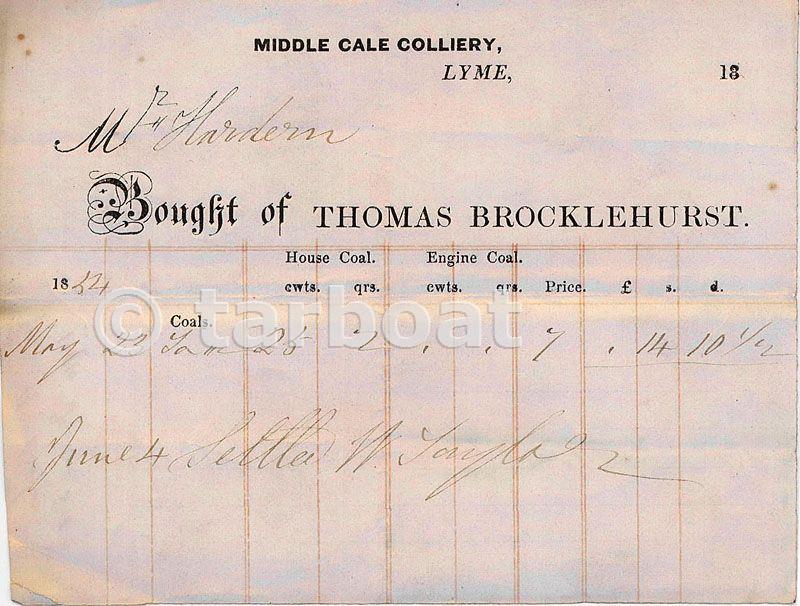 MIDDLE CALE COLLIERY,
LYME, 18
Mr Hardern
Bought of THOMAS BROCKLEHURST.
House Coal. Engine Coal.
1854 cwts. qrs. cwts. qrs. Price. £ s. d.
© tarboat
Coals.
May 22 25 2 . . 7 . 14 10 1/2
June 4 Settled W. Taylor